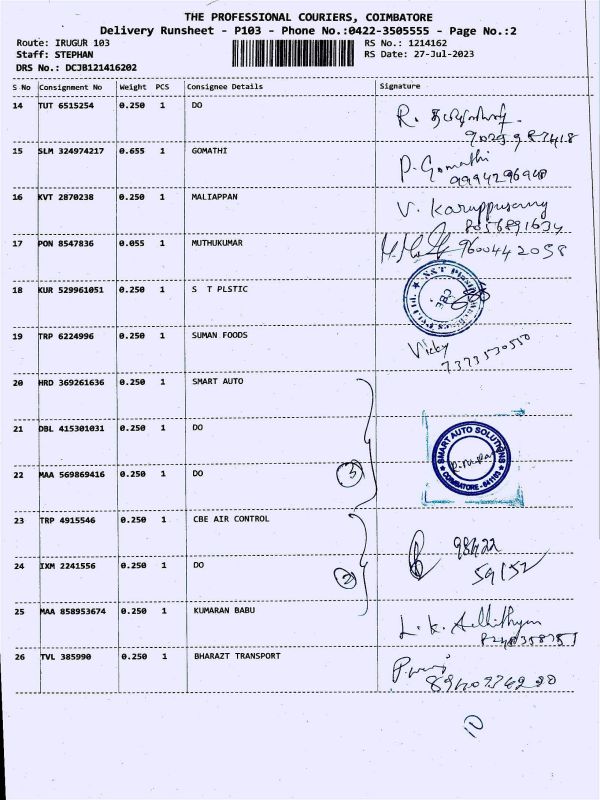 THE PROFESSIONAL COURIERS, COIMBATORE
Delivery Runsheet - P103 - Phone No.:0422-3505555 - Page No.:2
Route: IRUGUR 103 RS No.: 1214162
Staff: STEPHAN RS Date: 27-Jul-2023
DRS No.: DCJB121416202
S No Consignment No Weight PCS Consignee Details Signature
14 TUT 6515254 0.250 1 DO R.
15 SLM 324974217 0.655 1 GOMATHI P. Gomathi
9994296940
16 KVT 2870238 0.250 1 MALIAPPAN V. Karuppusamy
8056891634
17 PON 8547836 0.055 1 MUTHUKUMAR 9600442058
18 KUR 529961051 0.250 1 S T PLSTIC
19 TRP 6224996 0.250 1 SUMAN FOODS Vicky
7373530550
20 HRD 369261636 0.250 1 SMART AUTO
21 DBL 415301031 0.250 1 DO SMART AUTO SOLUTIONS
22 MAA 569869416 0.250 1 DO 3 COIMBATORE - 641103
23 TRP 4915546 0.250 1 CBE AIR CONTROL 98422
24 IXM 2241556 0.250 1 DO 2 59152
25 MAA 858953674 0.250 1 KUMARAN BABU L. K.
26 TVL 385990 0.250 1 BHARAZT TRANSPORT
10